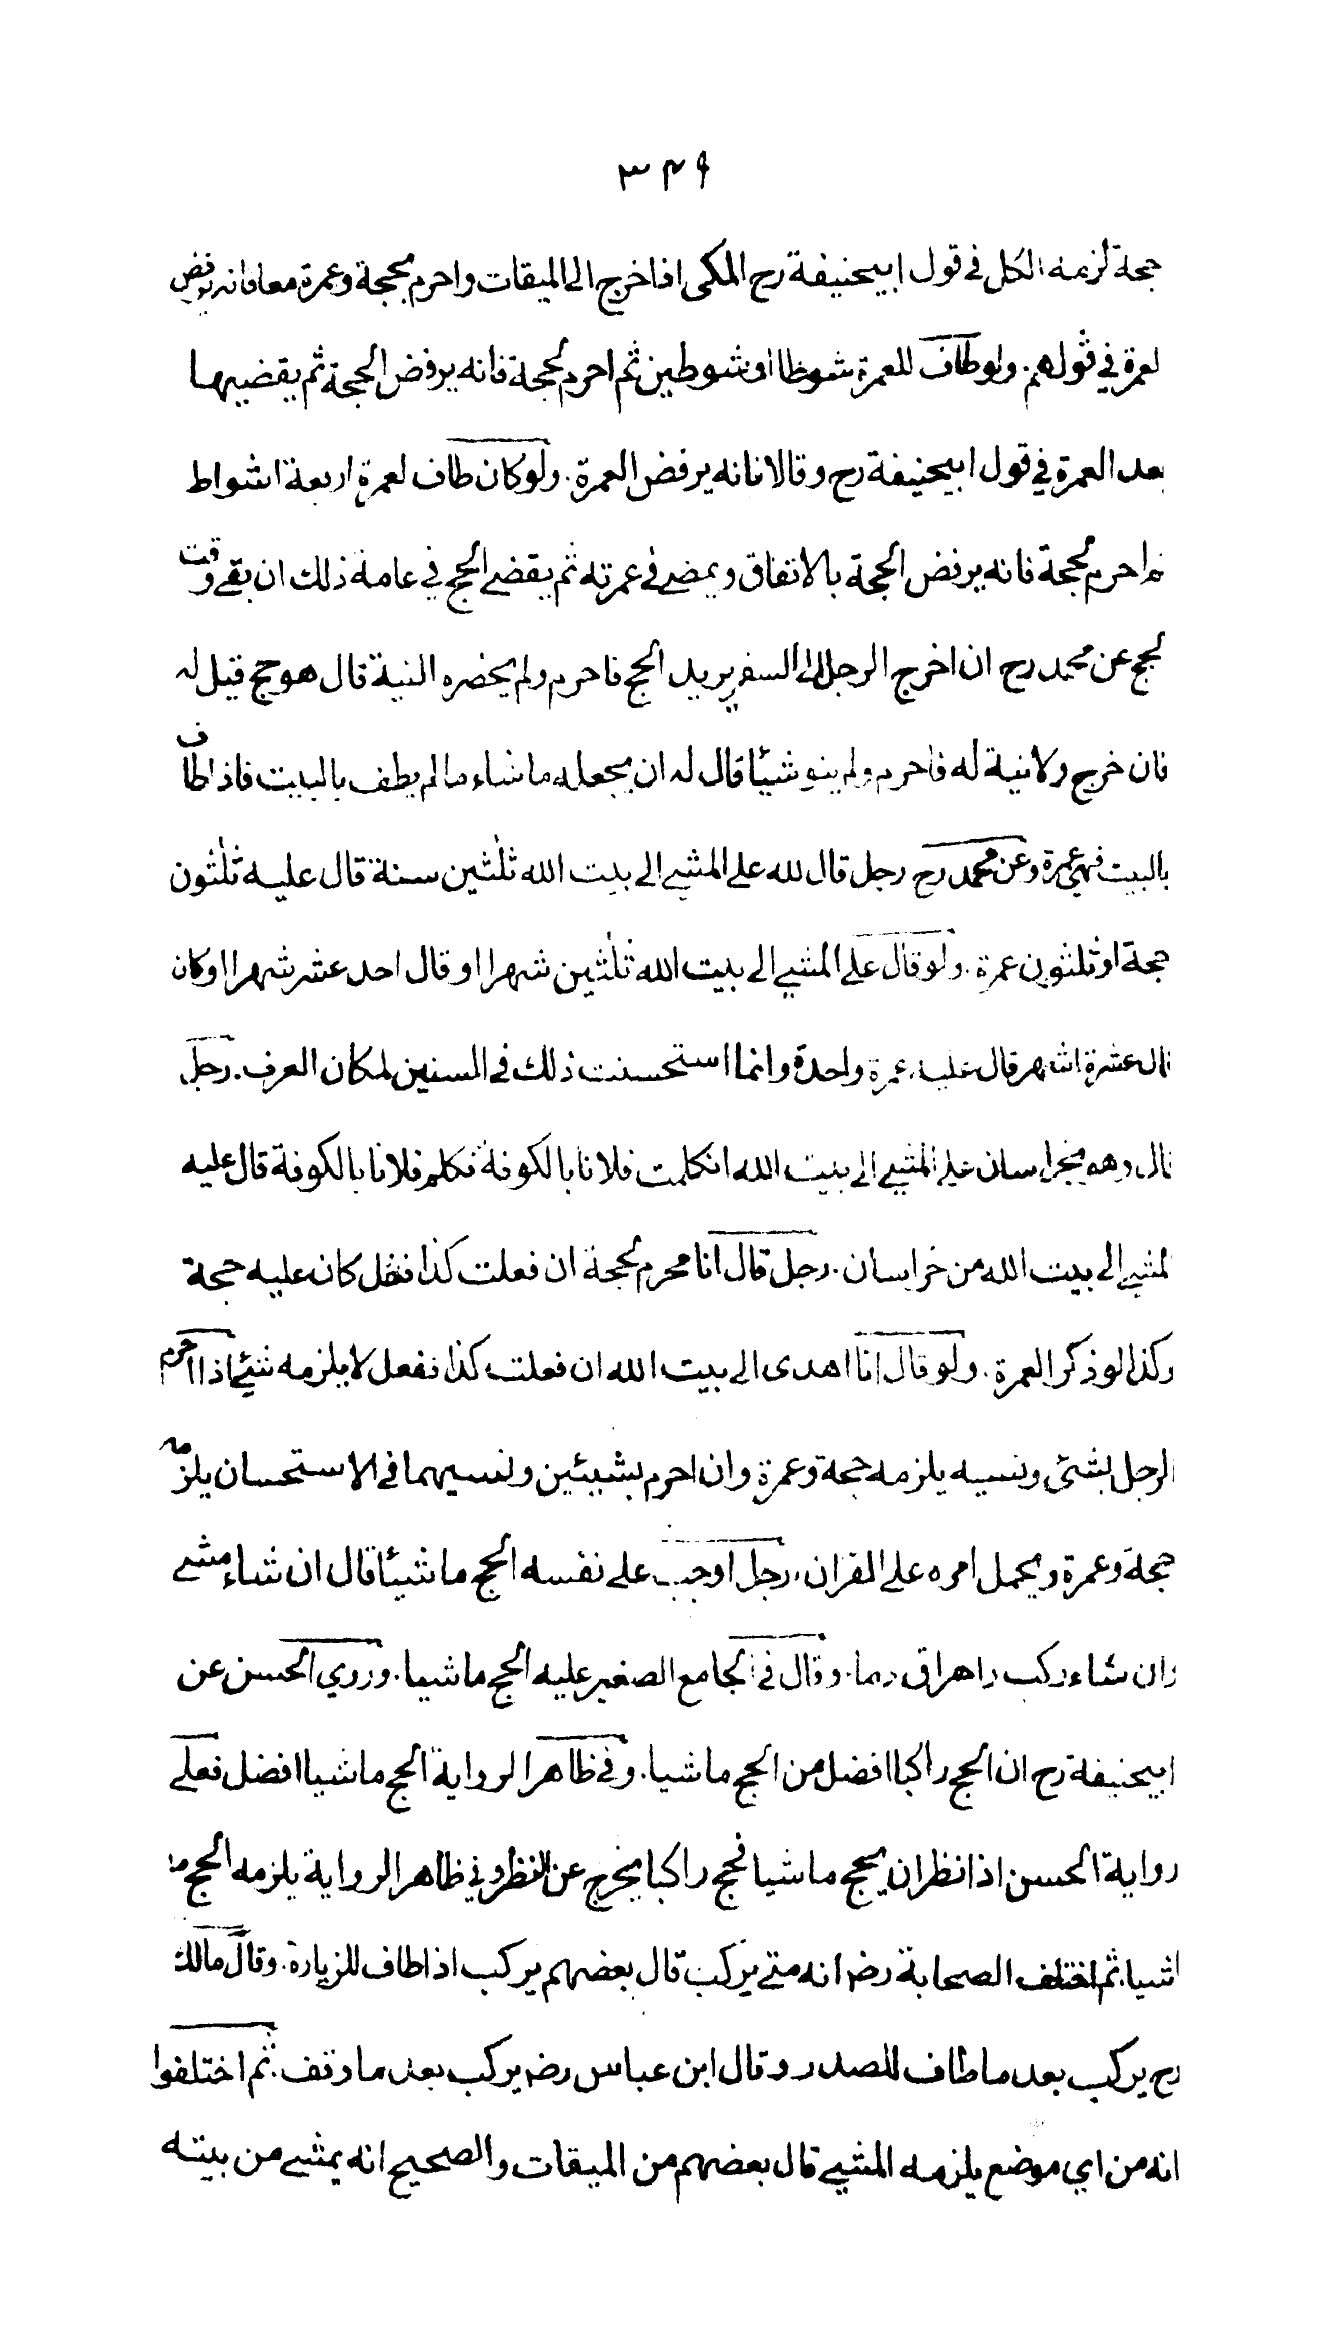 ٣٤٩
حجة لزمه الكل في قول ابيحنيفة رح المكى اذا خرج الى الميقات واحرم بحجة وعمرة معا فانه يرفض
لعمرة في قولهم . ولو طاف للعمرة شوطا او شوطين ثم احرم لحجة فانه يرفض الحجة ثم يقضيها
بعد العمرة في قول ابيحنيفة رح وقالا فانه يرفض العمرة . ولو كان طاف لعمرة اربعة اشواط
ثم احرم لحجة فانه يرفض الحجة بالاتفاق ويمضے في عمرته ثم يقضے الحج في عامه ذلك ان بقے وقت
لحج عن محمد رح ان اخرج الرجل الى السفر يريد الحج فاحرم ولم يحضره النية قال هو حج قيل له
فان خرج ولا نية له فاحرم ولم ينو شيئا قال له ان يجعله ما شاء ما لم يطف بالبيت فاذا طاف
بالبيت فهى عمرة وعن محمد رح رجل قال لله علے المشے الى بيت الله ثلثين سنة قال عليه ثلثون
حجة او ثلثون عمرة . ولو قال علے المشے الى بيت الله ثلثين شهرا او قال احد عشر شهرا او كان
قال عشرة اشهر قال عليه عمرة واحدة وانما استحسنت ذلك في السنين لمكان العرف . رجل
قال وهو بخراسان علے المشے الى بيت الله ان كلمت فلانا بالكوفة فكلم فلانا بالكوفة قال عليه
لمشے الى بيت الله من خراسان . رجل قال انا محرم لحجة ان فعلت كذا ففعل كان عليه حجة
وكذا لو ذكر العمرة . ولو قال انا اهدى الى بيت الله ان فعلت كذا ففعل لا يلزمه شيئ اذا احرم
الرجل بشئ ونسيه يلزمه حجة وعمرة وان احرم بشيئين ونسيهما في الاستحسان يلزمه
حجة وعمرة ويحمل امره علے القران . رجل اوجب علے نفسه الحج ماشيئا قال ان شاء مشے
وان شاء ركب واهراق دما . وقال في الجامع الصغير عليه الحج ماشيا . وروي الحسن عن
ابيحنيفة رح ان الحج راكبا افضل من الحج ماشيا . وفي ظاهر الرواية الحج ماشيا افضل فعلے
رواية الحسن اذا نظر ان يحج ماشيا فحج راكبا يخرج عن النظر وفي ظاهر الرواية يلزمه الحج ما
اشيا . ثم اختلف الصحابة رضہ انه متے يركب قال بعضهم يركب اذا طاف للزيارة . وقال مالك
رح يركب بعد ما طاف للصدر وقال ابن عباس رضہ يركب بعد ما وقف . ثم اختلفوا
انه من اي موضع يلزمه المشے قال بعضهم من الميقات والصحيح انه يمشے من بيته